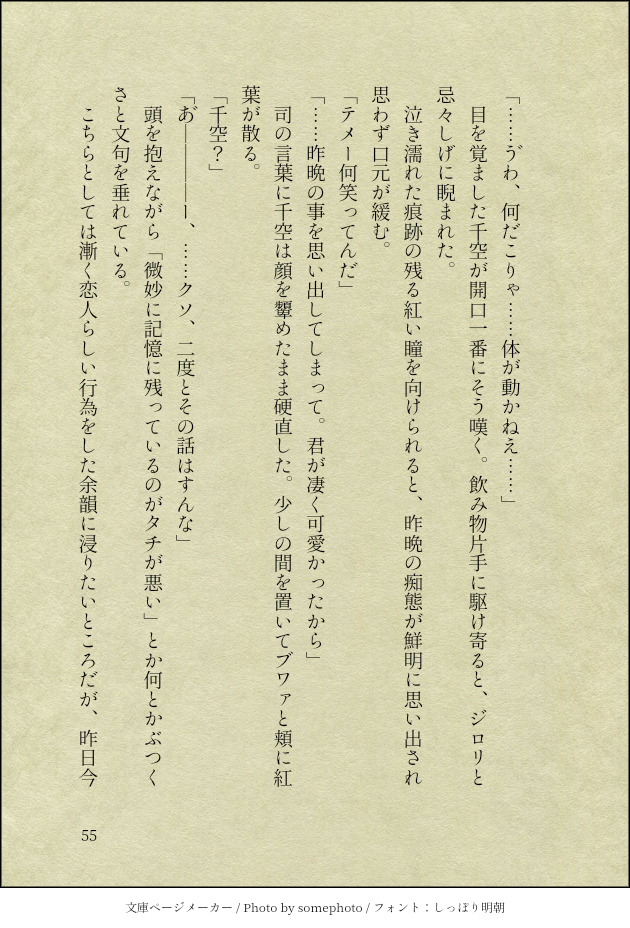 「……ゔわ、何だこりゃ……体が動かねえ……」
目を覚ました千空が開口一番にそう嘆く。飲み物片手に駆け寄ると、ジロリと
忌々しげに睨まれた。
泣き濡れた痕跡の残る紅い瞳を向けられると、昨晩の痴態が鮮明に思い出され
思わず口元が緩む。
「テメー何笑ってんだ」
「……昨晩の事を思い出してしまって。君が凄く可愛かったから」
司の言葉に千空は顔を顰めたまま硬直した。少しの間を置いてブワァと頬に紅
葉が散る。
「千空？」
「あ゙――――ー、……クソ、二度とその話はすんな」
頭を抱えながら「微妙に記憶に残っているのがタチが悪い」とか何とかぶつく
さと文句を垂れている。
こちらとしては漸く恋人らしい行為をした余韻に浸りたいところだが、昨日今
55
文庫ページメーカー / Photo by somephoto / フォント：しっぽり明朝